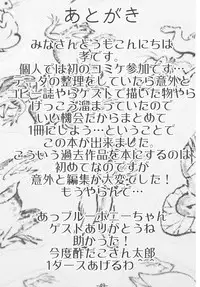 あとがき
みなさんどうもこんにちは
孝です。
個人では初のコミケ参加です…
データの整理をしていたら意外と
コピー誌やらゲストで描いた物やら
けっこう溜まっていたので
いい機会だからまとめて
1冊にしよう…ということで
この本が出来ました。
こういう過去作品を本にするのは
初めてなのですが
意外と編集が大変でした!
もうやらだで…
あっブルーホエーちゃん
ゲストありがとうね
助かったわ!
今度酢だこさん太郎
1ダースあげるわ